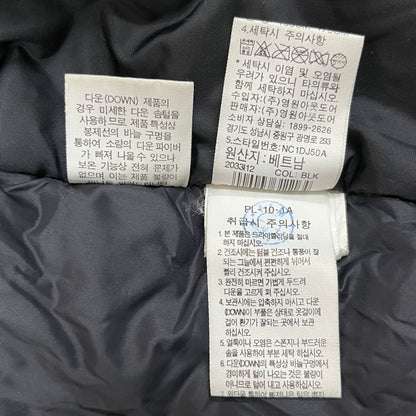 다운(DOWN) 제품의
경우 미세한 다운 솜털을
사용하므로 제품특성상
봉제선의 바늘 구멍을
통하여 소량의 다운 파이버
가 빠져 나올수 있으나
보온 기능상 전혀 문제가
없으며 이는 제품 불량이
아닙니다.
4.세탁시 주의사항
*세탁시 이염 및 오염될
우려가 있으니 타의류와
함께 세탁하지 마십시오.
수입자:(주)영원아웃도어
판매자:(주)영원아웃도어
소비자 상담실:1899-2626
경기도 성남시 중원구 광명로 293
5.스타일번호:NC1DJ50A
원산지:베트남
203312
COL: BLK
PL-10-1A
취급시 주의사항
1. 본 제품은 드라이클리닝을 절대
하지 마십시오.
2. 건조시에는 텀블 건조나 통풍이 잘
되는 그늘에서 편편하게 뉘어서
빨리 건조시켜 주십시오.
3. 완전히 마르면 가볍게 두드려
다운을 고르게 펴 주십시오.
4. 보관시에는 압축하지 마시고 다운
(DOWN)이 부풀은 상태로 옷걸이에
걸어 환기가 잘되는 곳에서 보관
하십시오.
5. 얼룩이나 오염은 스폰지나 부드러운
솔을 사용하여 부분 세탁 하십시오.
6. 다운(DOWN)의 특성상 바늘구멍에서
경미하게 털이 나오는 것은 불량이
아니므로 털이 나왔다고 하여